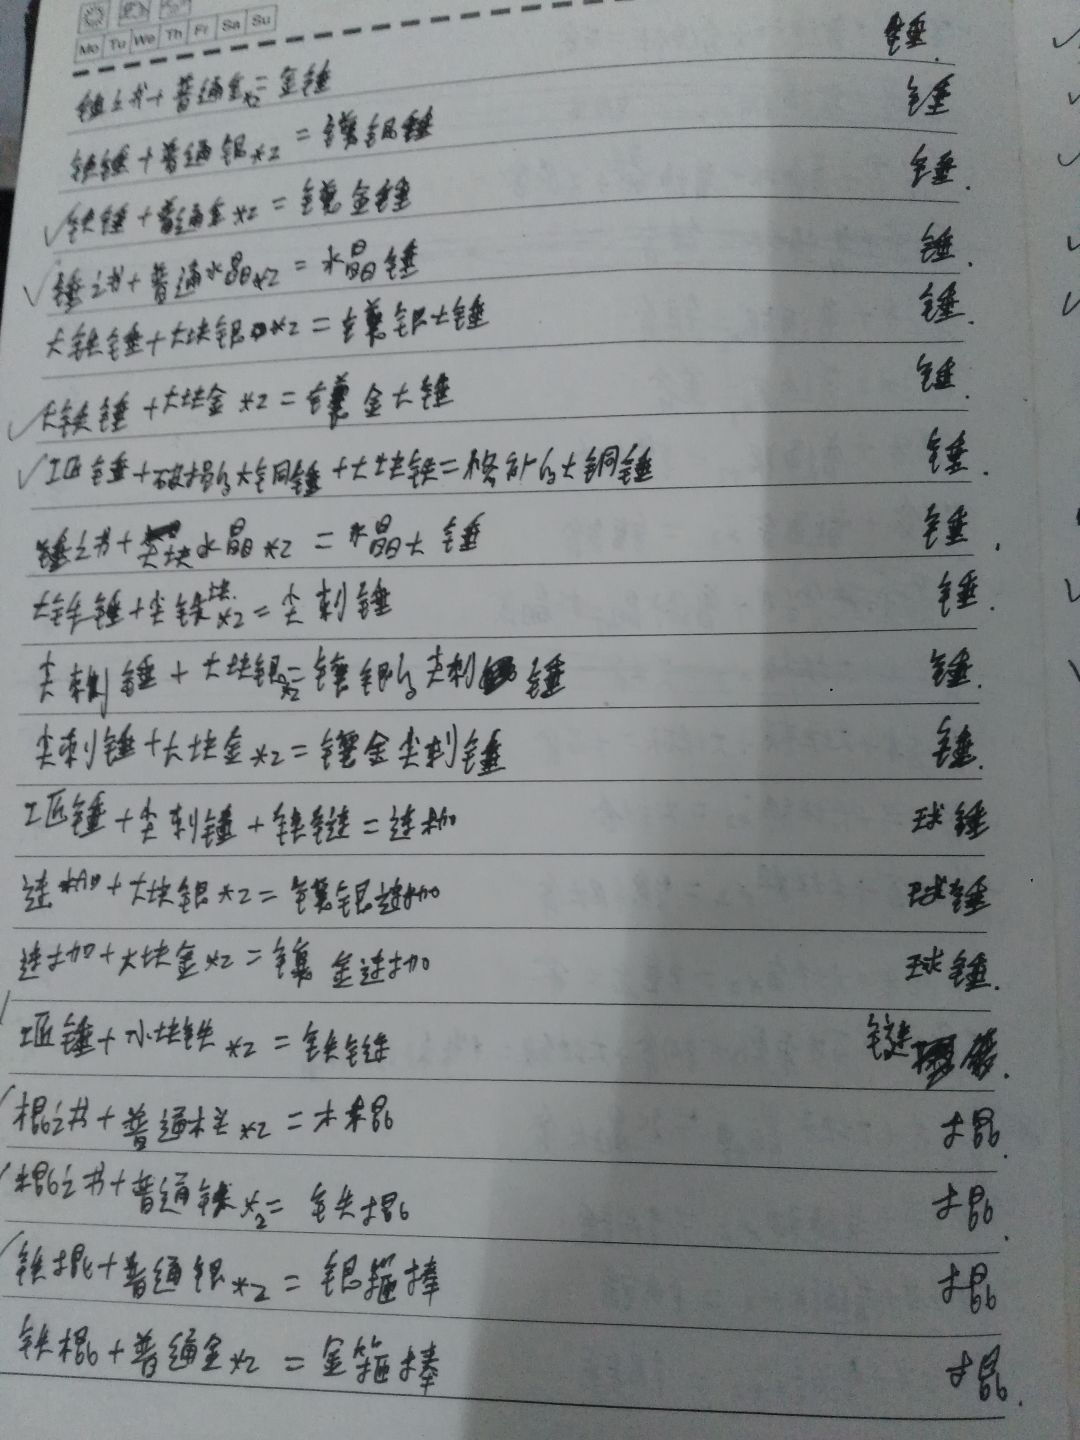 Mo Tu We Th Fr Sa Su
锤之书+普通金*2=金锤 锤.
铁锤+普通银*2=镶银锤 锤
✓铁锤+普通金*2=镶金锤 锤.
✓锤之书+普通水晶*2=水晶锤 锤.
大铁锤+大块银*2=镶银大锤 锤.
✓大铁锤+大块金*2=镶金大锤 锤.
✓工匠锤+破损的大铜锤+大块铁=修补的大铜锤 锤.
锤之书+大块水晶*2=水晶大锤 锤.
大铁锤+尖铁块*2=尖刺锤 锤.
尖刺锤+大块银*2=镶银的尖刺锤 锤.
尖刺锤+大块金*2=镶金尖刺锤 锤.
工匠锤+尖刺锤+铁链=连枷 球锤
连枷+大块银*2=镶银连枷 球锤
连枷+大块金*2=镶金连枷 球锤.
工匠锤+小块铁*2=铁链 链.
✓棍之书+普通木头*2=木棍 棍.
✓棍之书+普通铁*2=铁棍 棍.
✓铁棍+普通银*2=银箍棒 棍
铁棍+普通金*2=金箍棒 棍.